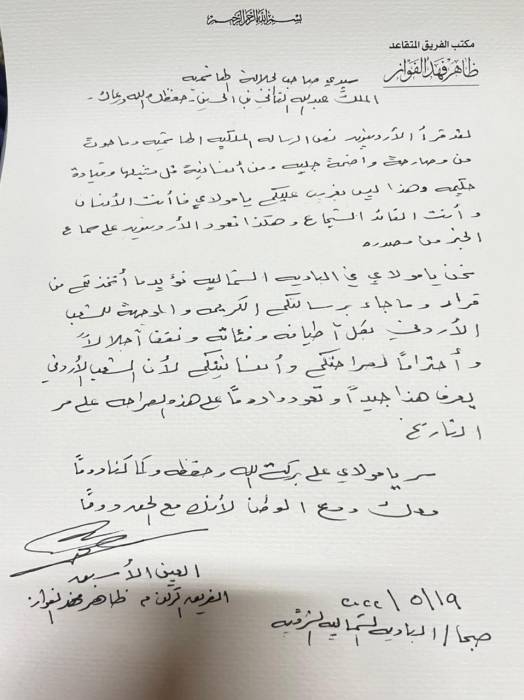 بسم الله الرحمن الرحيم
مكتب الفريق المتقاعد
ظاهر فهد الفواز
سيدي صاحب الجلالة الهاشمية
الملك عبدالله الثاني ابن الحسين - حفظك الله ورعاك -
لقد قرأ الأردنيون نص الرساله الملكيه الهاشميه وما حوت
من وصارحة واضحة جليه ومن أنسانية قل مثيلها وقيادة
حكيمه وهذا ليس بغريب عليكم يا مولاي فأنت الأنسان
وأنت القائد الشجاع وهكذا تعود الأردنيون على سماع
الخبر من مصدره
نحن يا مولاي في الباديه الشماليه نؤيد ما أتخذتم من
قرار وما جاء برسالتكم الكريمه والموجهة للشعب
الأردني بكل أطيافه وفئاته ونقف أجلالاً
وأحتراماً لصراحتكم وأنسانيتكم لأن الشعب الأردني
يعرف هذا جيداً وتعود دوماً على هذه الصراحه على مر
التاريخ
سر يا مولاي على بركت الله وحفظه وكما كنا دوماً
معك ومع الوطن لأنك مع الحق دوماً
العين الأسبق
الفريق الركن م ظاهر فهد الفواز
٢٠٢٢/٥/١٩
صبحا / الباديه الشماليه الشرقيه